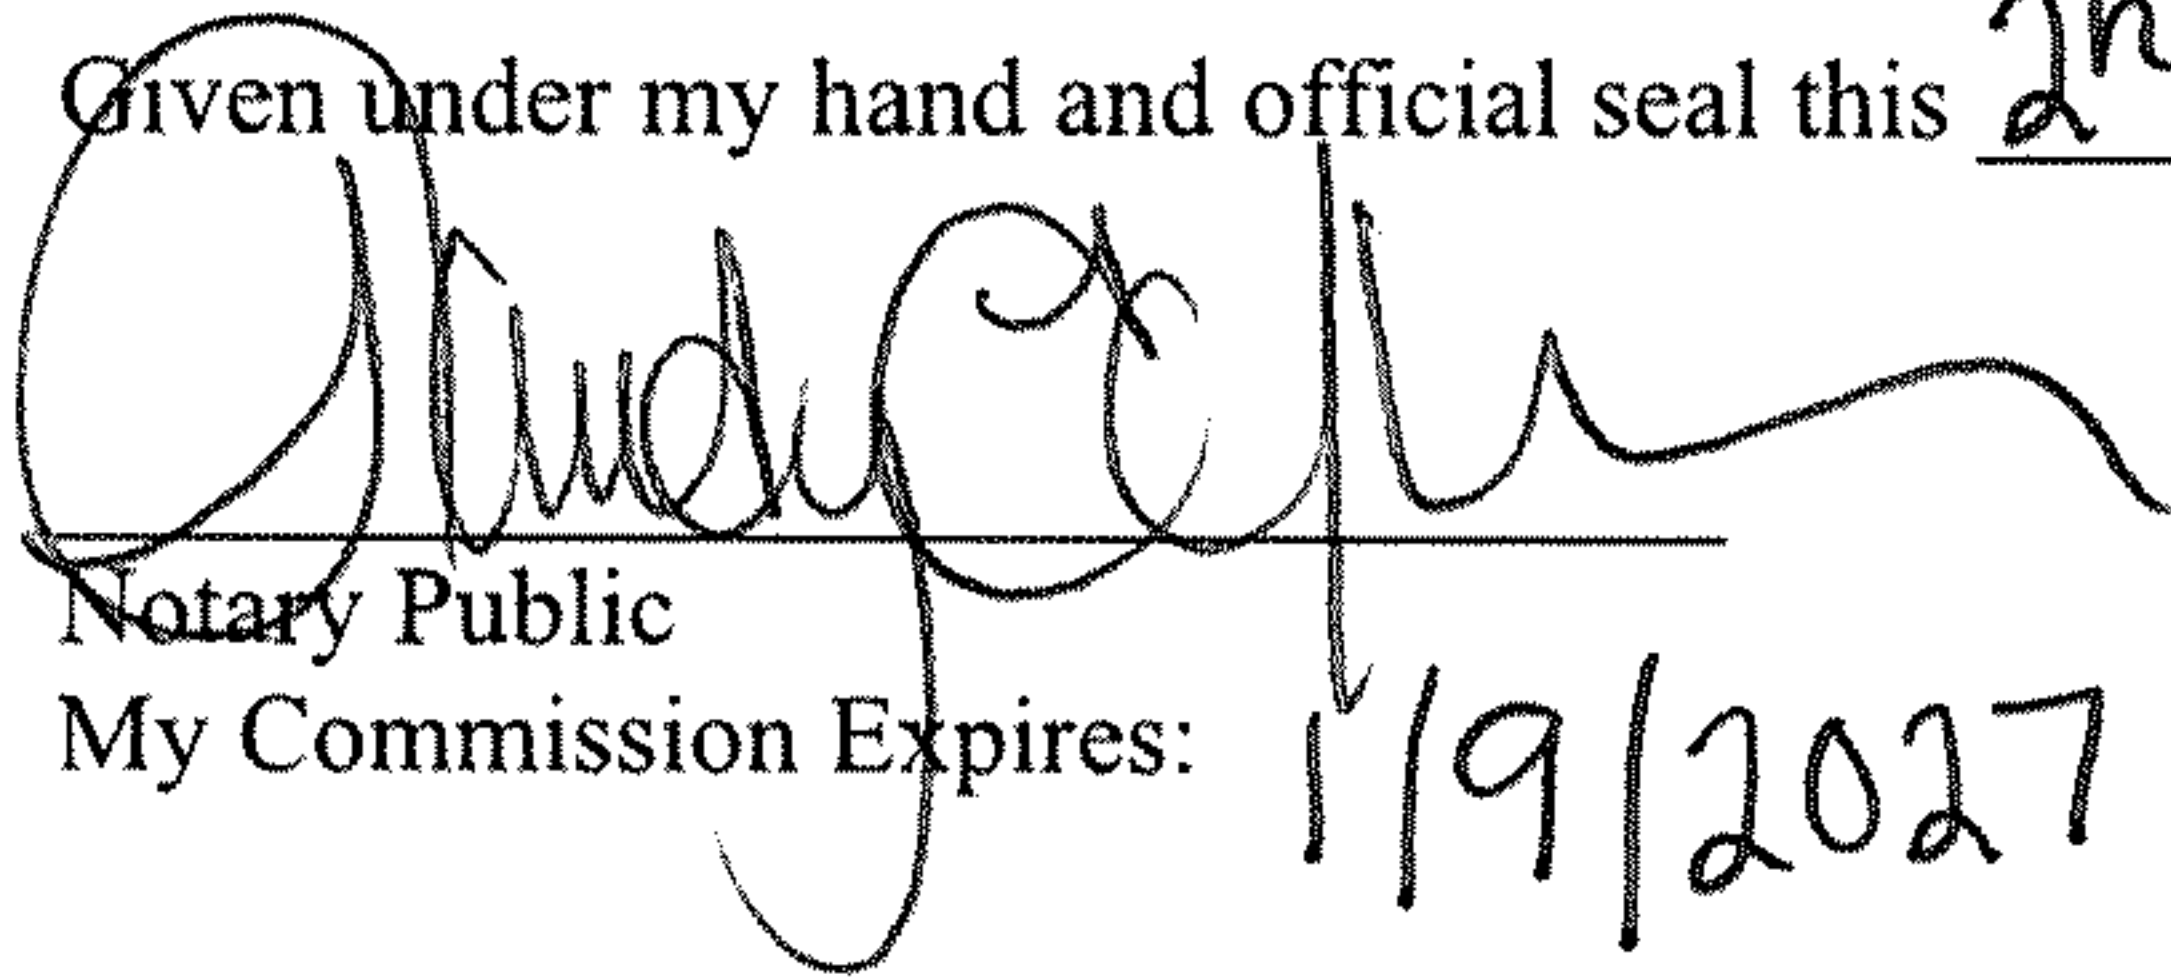 Given under my hand and official seal this 2n
Notary Public
My Commission Expires: 1/9/2027